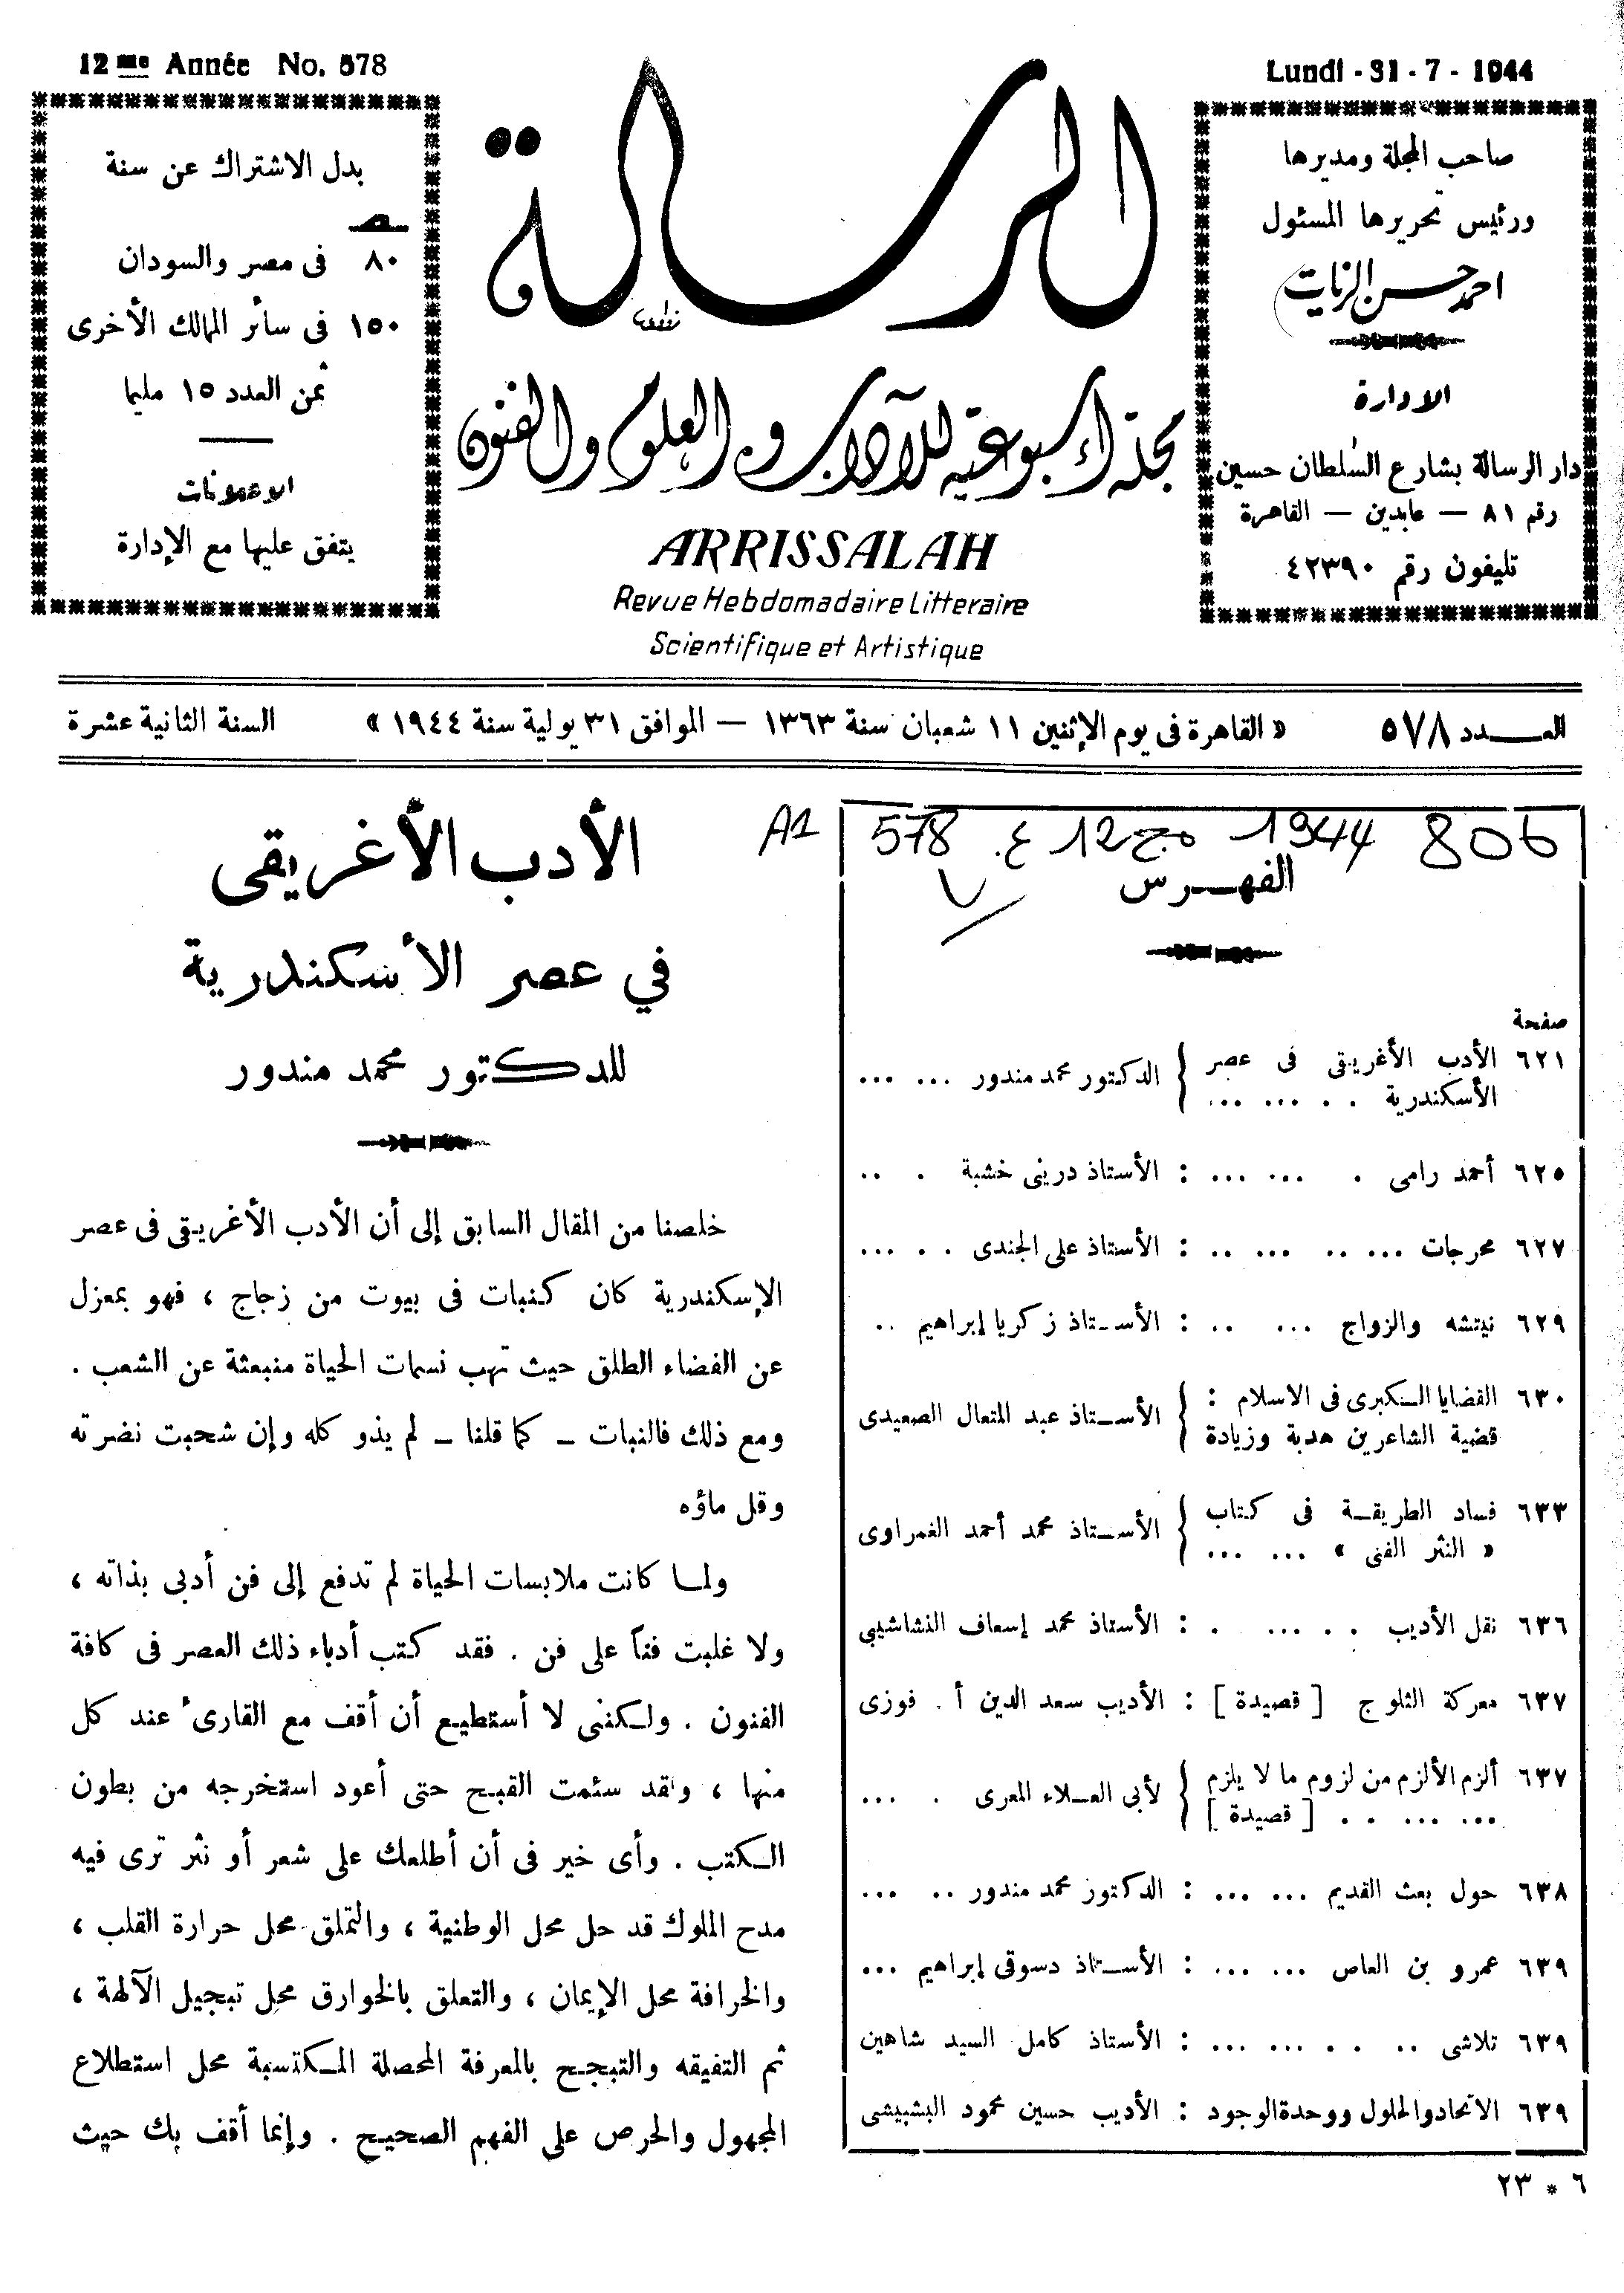 12me Année No. 578
Lundi - 31 - 7 - 1944
صاحب المجلة ومديرها
ورئيس تحريرها المسئول
احمد حسن الزيات
الادارة
دار الرسالة بشارع السلطان حسين
رقم ٨١ — عابدين — القاهرة
تليفون رقم ٤٢٣٩٠
الرسالة
مجلة أسبوعية للآداب والعلوم والفنون
ARRISSALAH
Revue Hebdomadaire Litteraire
Scientifique et Artistique
بدل الاشتراك عن سنة
٨٠ فى مصر والسودان
١٥٠ فى سائر الممالك الأخرى
ثمن العدد ١٥ مليما
الاعلانات
يتفق عليها مع الإدارة
العـــدد ٥٧٨ « القاهرة فى يوم الإثنين ١١ شعبان سنة ١٣٦٣ — الموافق ٣١ يولية سنة ١٩٤٤ » السنة الثانية عشرة
806 1944 مج 12 ع. 578
A1
الفهـــرس
صفحة
٦٢١ الأدب الأغريقى فى عصر الأسكندرية . . ... ... } الدكتور محمد مندور ... ...
٦٢٥ أحمد رامى . ... ... : الأستاذ درينى خشبة . ..
٦٢٧ محرجات ... .. ... .. : الأستاذ على الجندى . . ...
٦٢٩ نيتشه والزواج ... .. : الأســتاذ زكريا إبراهيم ..
٦٣٠ القضايا الكبرى فى الاسلام : قضية الشاعرين هدبة وزيادة } الأســتاذ عبد المتعال الصعيدى
٦٣٣ فساد الطريقــة فى كتاب « النثر الفنى » ... ... } الأســتاذ محمد أحمد الغمراوى
٦٣٦ نقل الأديب . . ... . : الأستاذ محمد إسعاف النشاشيبى
٦٣٧ معركة الثلوج [ قصيدة ] : الأديب سعد الدين أ . فوزى
٦٣٧ ألزم الألزم من لزوم ما لا يلزم ... ... . . [ قصيدة ] } لأبى العــلاء المعرى . ...
٦٣٨ حول بعث القديم ... ... : الدكتور محمد مندور .. ...
٦٣٩ عمرو بن العاص ... ... : الأســتاذ دسوقى إبراهيم ...
٦٣٩ تلاشى .. . . ... ... : الأستاذ كامل السيد شاهين
٦٣٩ الاتحاد والحلول ووحدة الوجود : الأديب حسين محمود البشبيشى
٦ * ٢٣
الأدب الأغريقى
في عصر الأسكندرية
للدكتور محمد مندور
خلصنا من المقال السابق إلى أن الأدب الأغريقى فى عصر
الإسكندرية كان كنبات فى بيوت من زجاج ، فهو بمعزل
عن الفضاء الطلق حيث تهب نسمات الحياة منبعثة عن الشعب .
ومع ذلك فالنبات – كما قلنا – لم يذو كله وإن شحبت نضرته
وقل ماؤه
ولمــا كانت ملابسات الحياة لم تدفع إلى فن أدبى بذاته ،
ولا غلبت فناً على فن . فقد كتب أدباء ذلك العصر فى كافة
الفنون . ولكننى لا أستطيع أن أقف مع القارئ عند كل
منها ، ولقد سئمت القبح حتى أعود استخرجه من بطون
الكتب . وأى خير فى أن أطلعك على شعر أو نثر ترى فيه
مدح الملوك قد حل محل الوطنية ، والتملق محل حرارة القلب ،
والخرافة محل الإيمان ، والتعلق بالخوارق محل تبجيل الآلهة ،
ثم التفيقه والتبجح بالمعرفة المحصلة المكتسبة محل استطلاع
المجهول والحرص على الفهم الصحيح . وإنما أقف بك حيث